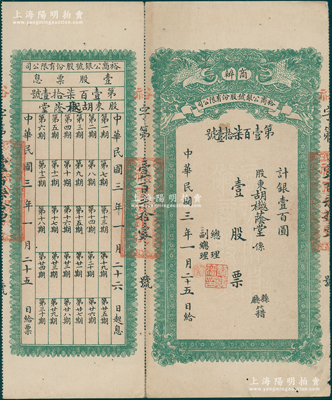 上海陽明拍賣
商辦
裕商公銀號股份有限公司
第壹百柒拾壹號
計銀壹百圓
股東胡樾蔭堂係
縣
廳
籍
壹股票
總理
副總理
中華民國三年一月二十五日給
字第壹百柒拾壹號
裕商公銀號股份有限公司
壹股票息
第壹百柒拾壹號
股東胡樾蔭堂
中華民國三年一月二十六日起息
第一期
第七期
第十三期
第十九期
第廿五期
第二期
第八期
第十四期
第二十期
第廿六期
第三期
第九期
第十五期
第廿一期
第廿七期
第四期
第十期
第十六期
第廿二期
第廿八期
第五期
第十一期
第十七期
第廿三期
第廿九期
第六期
第十二期
第十八期
第廿四期
第三十期
中華民國三年一月二十五日給票
上海陽明拍賣
www.ymauction.com